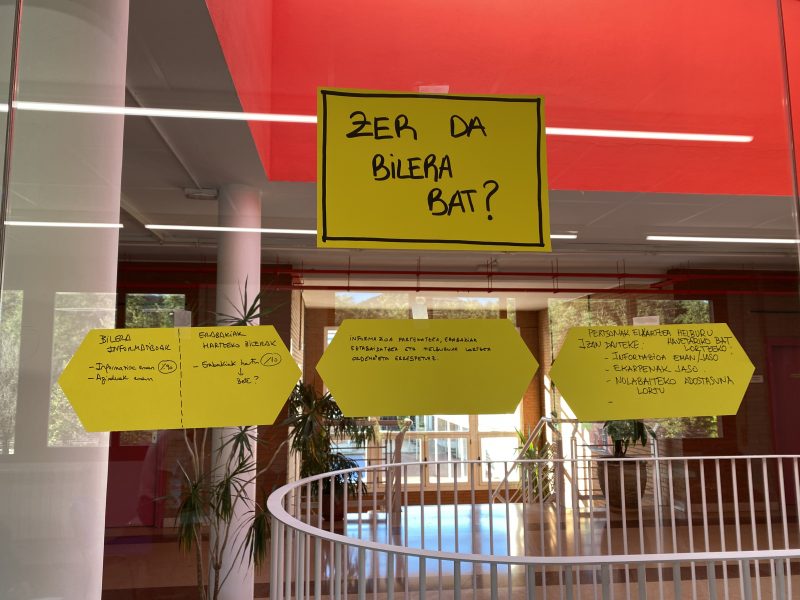 ZER DA
BILERA
BAT?
BILERA
INFORMATIBOAK
- Informazioa eman
- Aginduak eman
ERABAKIAK
HARTZEKO BILERAK
- Erabakiak hartu
BOTE?
INFORMAZIOA PARTEKATZEA, ERABAKIAK
EZTABAIDATZEA ETA HELBURUAK LORTZEA
ORDENA ETA ERRESPETUZ.
PERTSONAK ELKARTZEA HELBURU
IZAN DAITEKE, HAUETARIKO BAT
LORTZEKO:
- INFORMAZIOA EMAN/JASO
- EKARPENAK JASO
- NOLABAITEKO ADOSTASUNA
LORTU
-